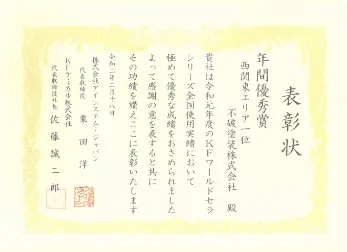 表彰状
年間優秀賞
西関東エリア一位
不破塗装株式会社 殿
貴社は令和元年度のKFワールドセラ
シリーズ全国使用実績において
極めて優秀な成績をおさめられました
よって感謝の意を表すると共に
その功績を讃えここに表彰いたします
令和二年二月十八日
株式会社アイ・システム・ジャパン
代表取締役 栗田 洋
KFケミカル株式会社
代表取締役社長 佐藤誠二郎